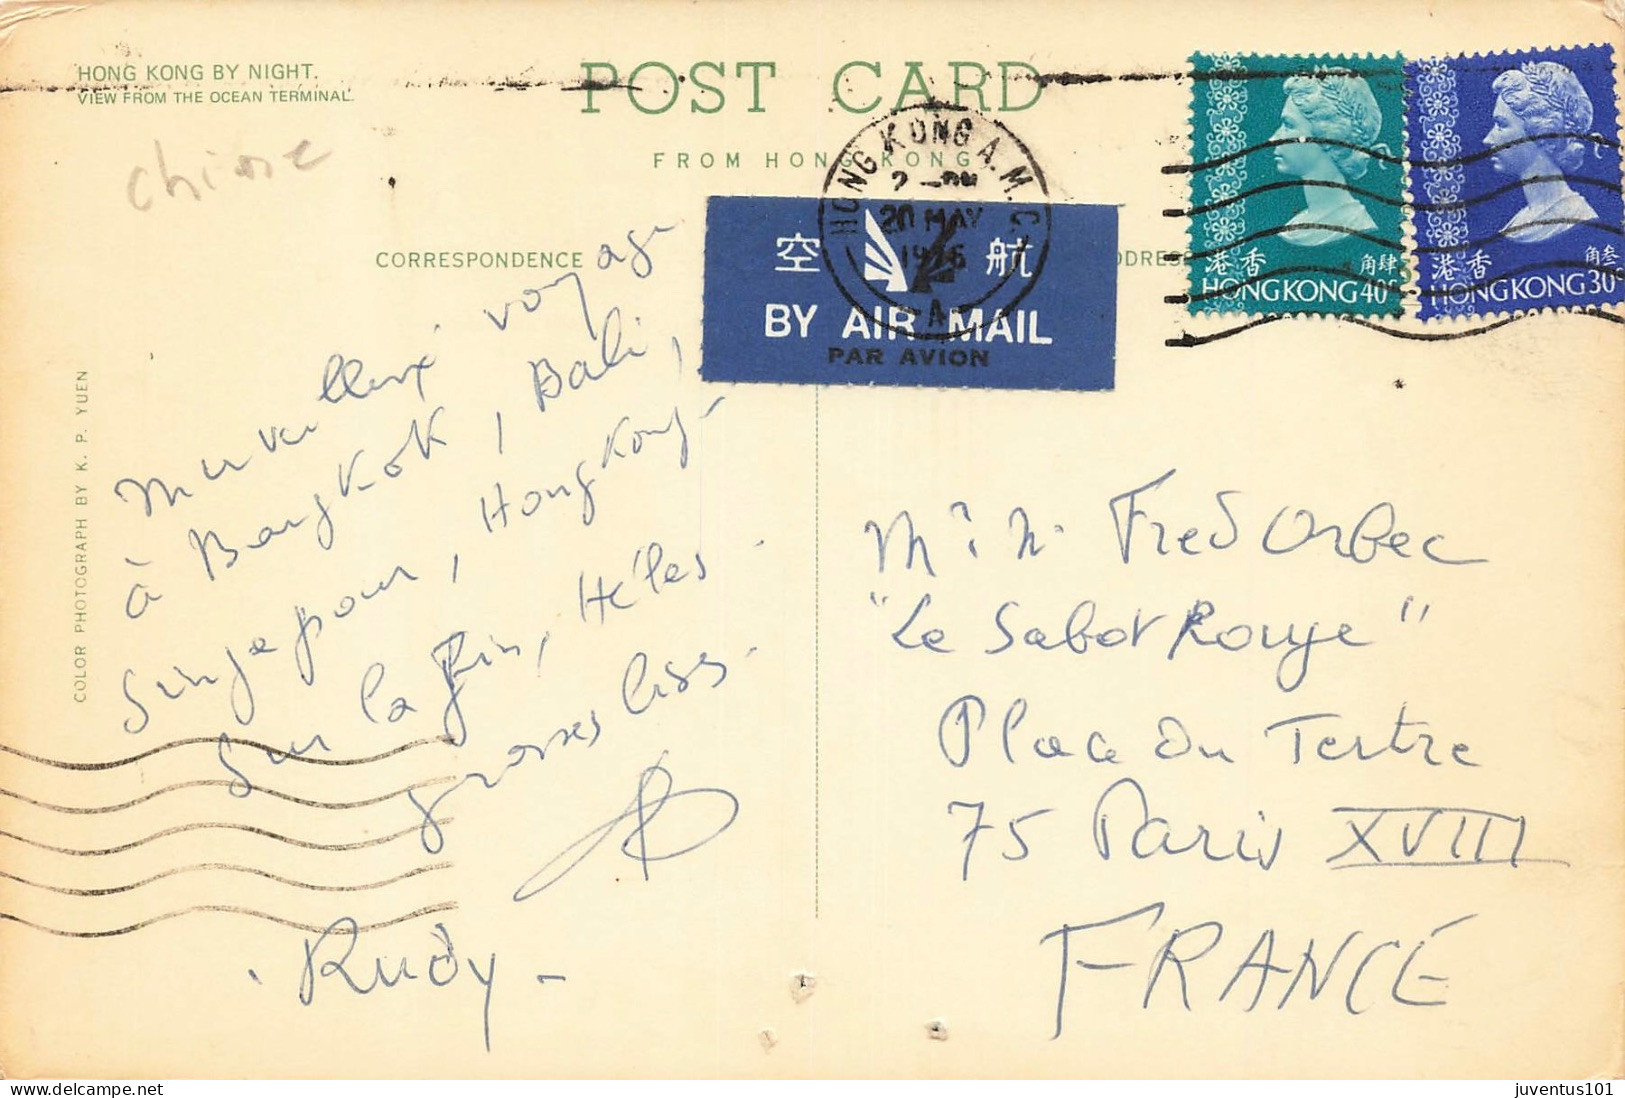 HONG KONG BY NIGHT.
VIEW FROM THE OCEAN TERMINAL.
POST CARD
FROM HONG KONG
chine
CORRESPONDENCE
COLOR PHOTOGRAPH BY K. P. YUEN
HONG KONG A.M.C.
20 MAY
A
空 航
BY AIR MAIL
PAR AVION
香港
角肆
HONG KONG 40c
香港
角叁
HONG KONG 30c
Merveilleux voyage
à Bangkok, Bali,
Singapour, Hong Kong
Sur la fin, Hélas.
grosses bises.
- Rudy -
Fred Orbec
"Le Sabot Rouge"
Place Du Tertre
75 Paris XVIII
FRANCE
delcampe.net
juventus101